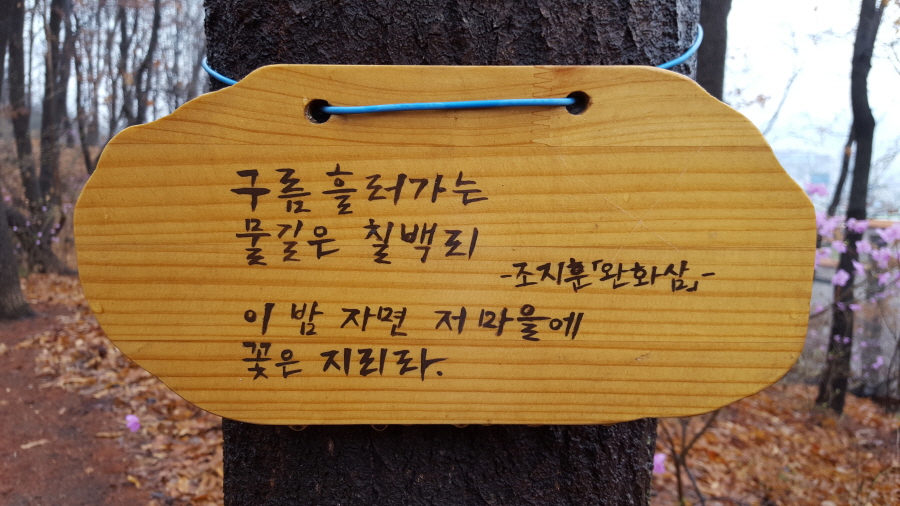 구름 흘러가는
물길은 칠백리
-조지훈「완화삼」-
이 밤 자면 저 마을에
꽃은 지리라.